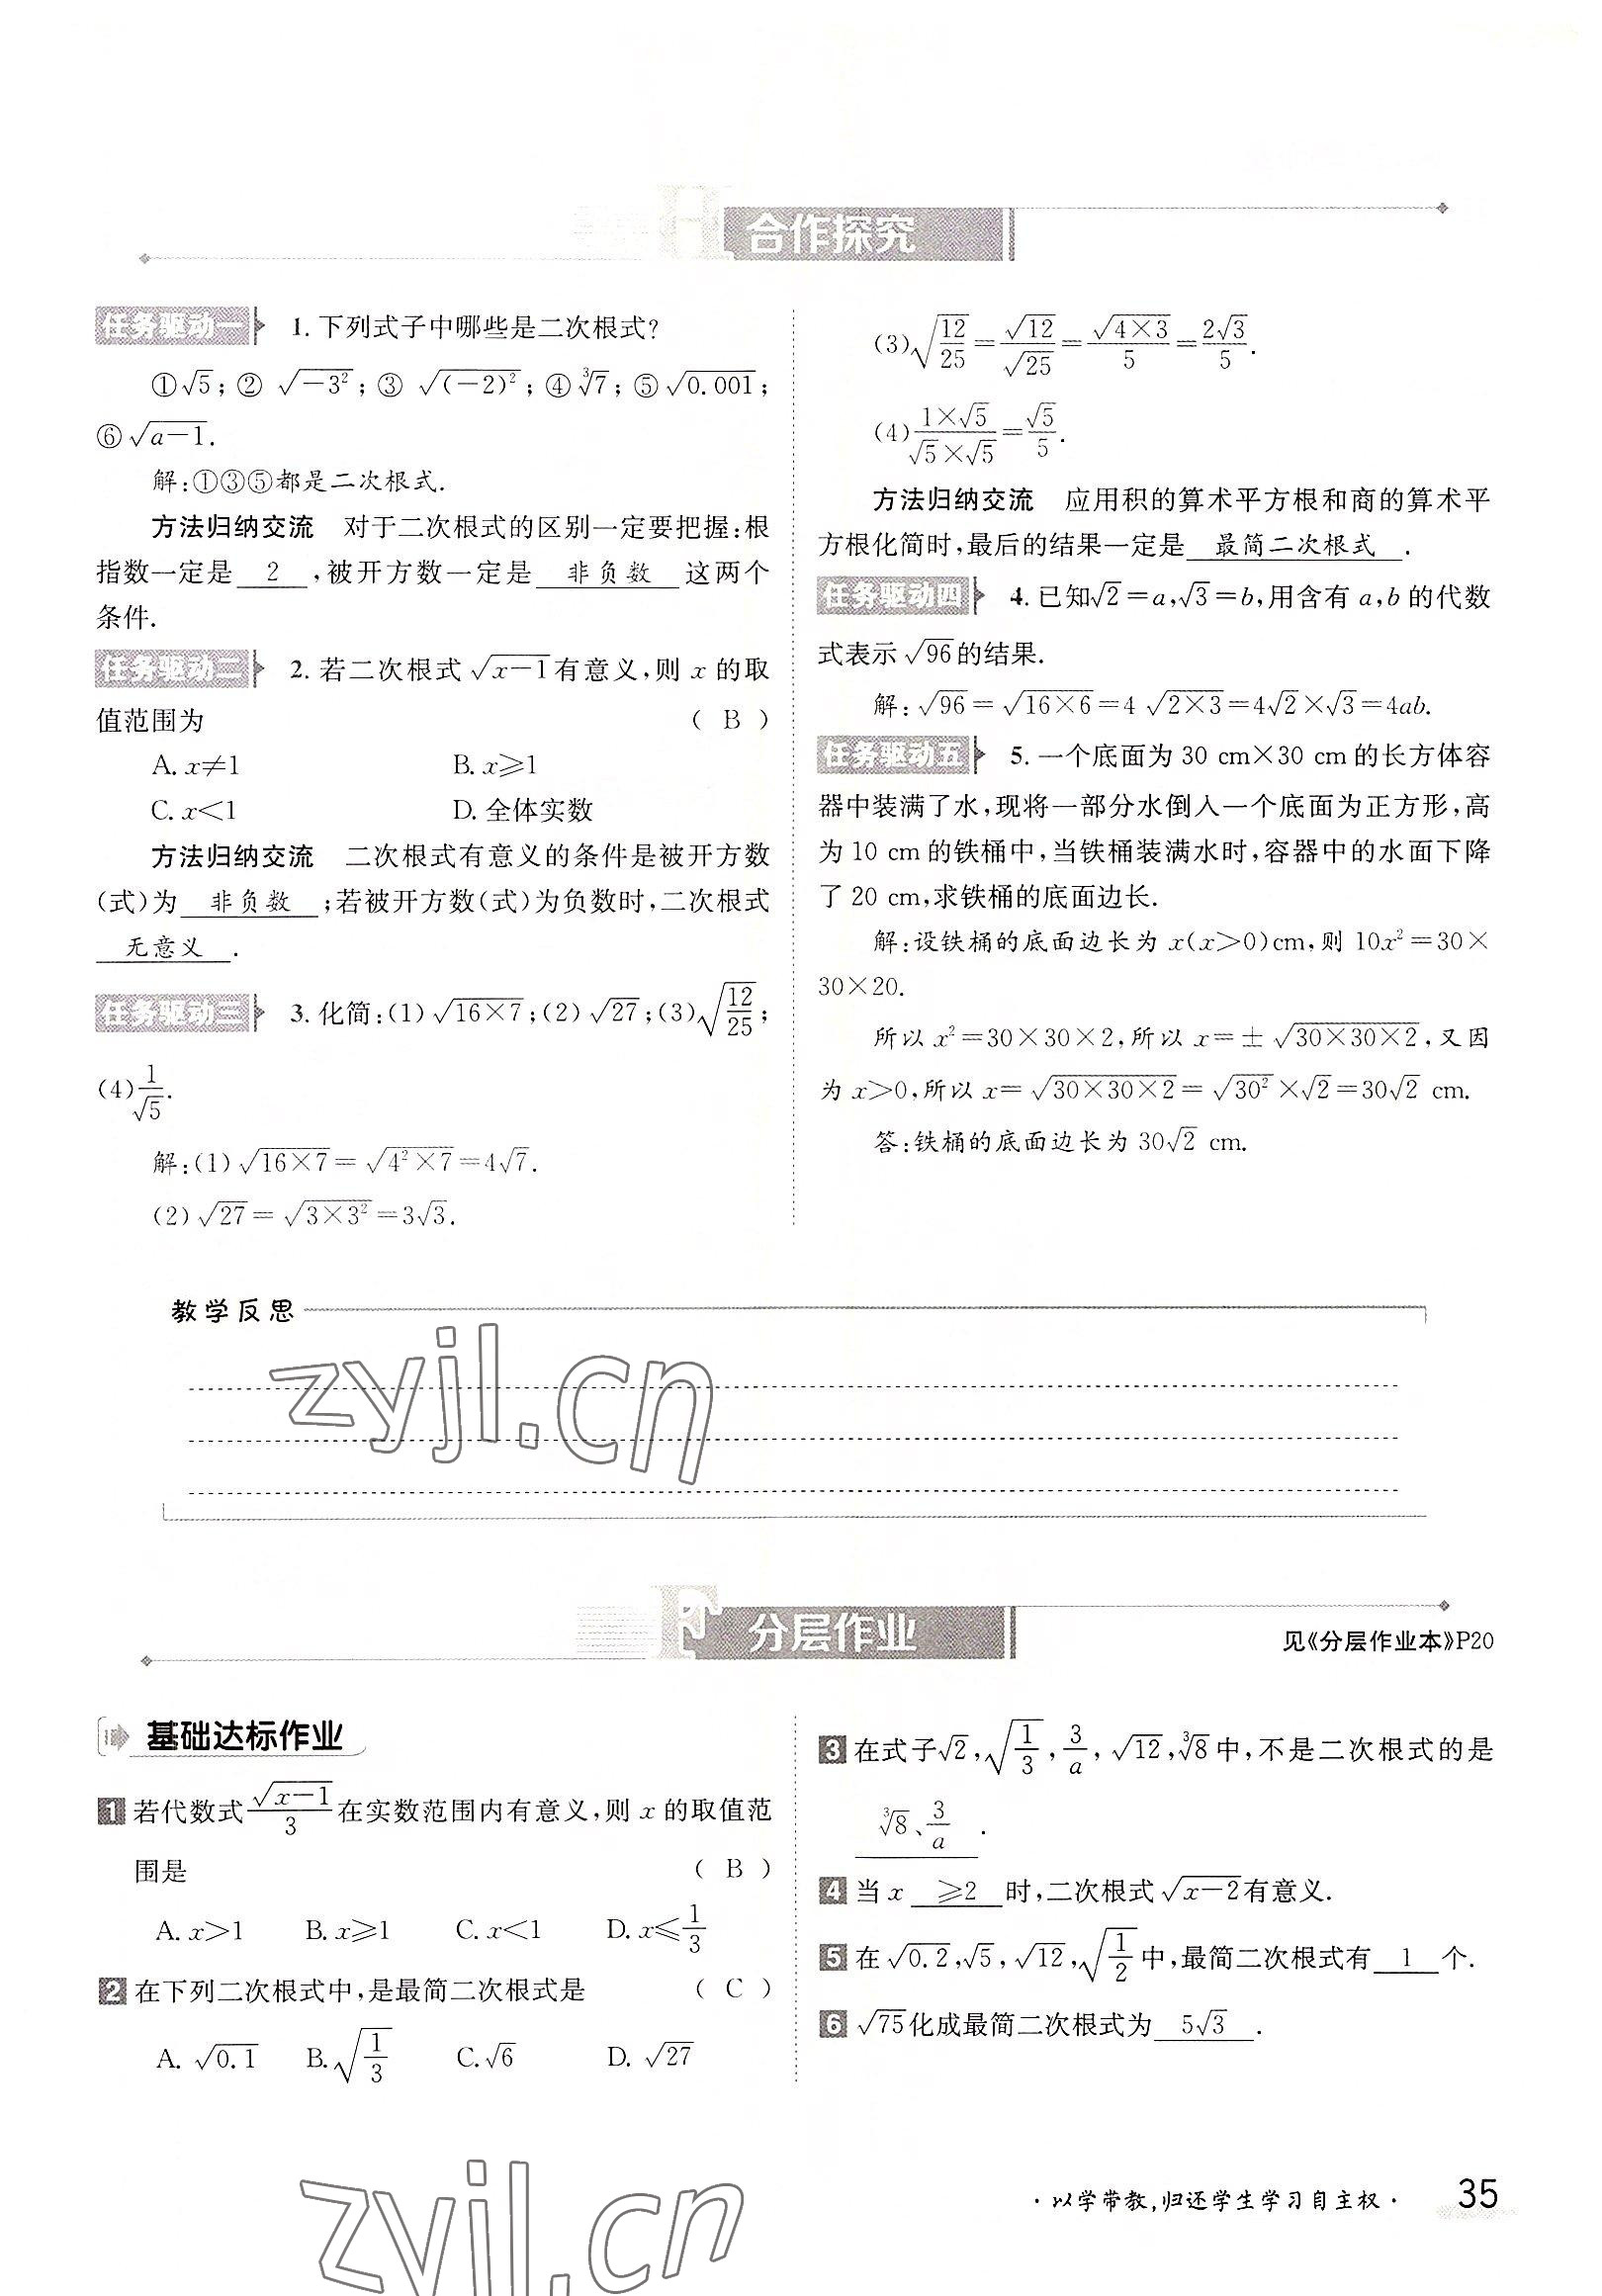 合作探究
任务驱动一 1. 下列式子中哪些是二次根式?
①√5; ② √(-3²); ③ √((-2)²); ④ ∛7; ⑤ √0.001;
⑥ √(a-1).
解:①③⑤都是二次根式.
方法归纳交流 对于二次根式的区别一定要把握:根
指数一定是 2 ,被开方数一定是 非负数 这两个
条件.
任务驱动二 2. 若二次根式 √(x-1) 有意义,则 x 的取
值范围为 ( B )
A. x≠1 B. x≥1
C. x<1 D. 全体实数
方法归纳交流 二次根式有意义的条件是被开方数
(式)为 非负数 ;若被开方数(式)为负数时,二次根式
无意义 .
任务驱动三 3. 化简:(1) √(16×7); (2) √27; (3) √(12/25);
(4) 1/√5.
解:(1) √(16×7) = √(4²×7) = 4√7.
(2) √27 = √(3×3²) = 3√3.
(3) √(12/25) = √12/√25 = √(4×3)/5 = 2√3/5.
(4) (1×√5)/(√5×√5) = √5/5.
方法归纳交流 应用积的算术平方根和商的算术平
方根化简时,最后的结果一定是 最简二次根式 .
任务驱动四 4. 已知√2=a,√3=b,用含有 a,b 的代数
式表示 √96 的结果.
解: √96 = √(16×6) = 4 √(2×3) = 4√2×√3 = 4ab.
任务驱动五 5. 一个底面为 30 cm×30 cm 的长方体容
器中装满了水,现将一部分水倒入一个底面为正方形,高
为 10 cm 的铁桶中,当铁桶装满水时,容器中的水面下降
了 20 cm,求铁桶的底面边长.
解:设铁桶的底面边长为 x(x>0)cm,则 10x²=30×
30×20.
所以 x²=30×30×2,所以 x=± √(30×30×2),又因
为 x>0,所以 x= √(30×30×2) = √30² ×√2=30√2 cm.
答:铁桶的底面边长为 30√2 cm.
教学反思
zyjl.cn
分层作业
见《分层作业本》P20
基础达标作业
1 若代数式 √(x-1)/3 在实数范围内有意义,则 x 的取值范
围是 ( B )
A. x>1 B. x≥1 C. x<1 D. x≤1/3
2 在下列二次根式中,是最简二次根式是 ( C )
A. √0.1 B. √(1/3) C. √6 D. √27
3 在式子√2, √(1/3), 3/a, √12, ∛8 中,不是二次根式的是
∛8、3/a .
4 当 x ≥2 时,二次根式 √(x-2) 有意义.
5 在 √0.2, √5, √12, √(1/2) 中,最简二次根式有 1 个.
6 √75 化成最简二次根式为 5√3 .
zyjl.cn
·以学带教,归还学生学习自主权· 35